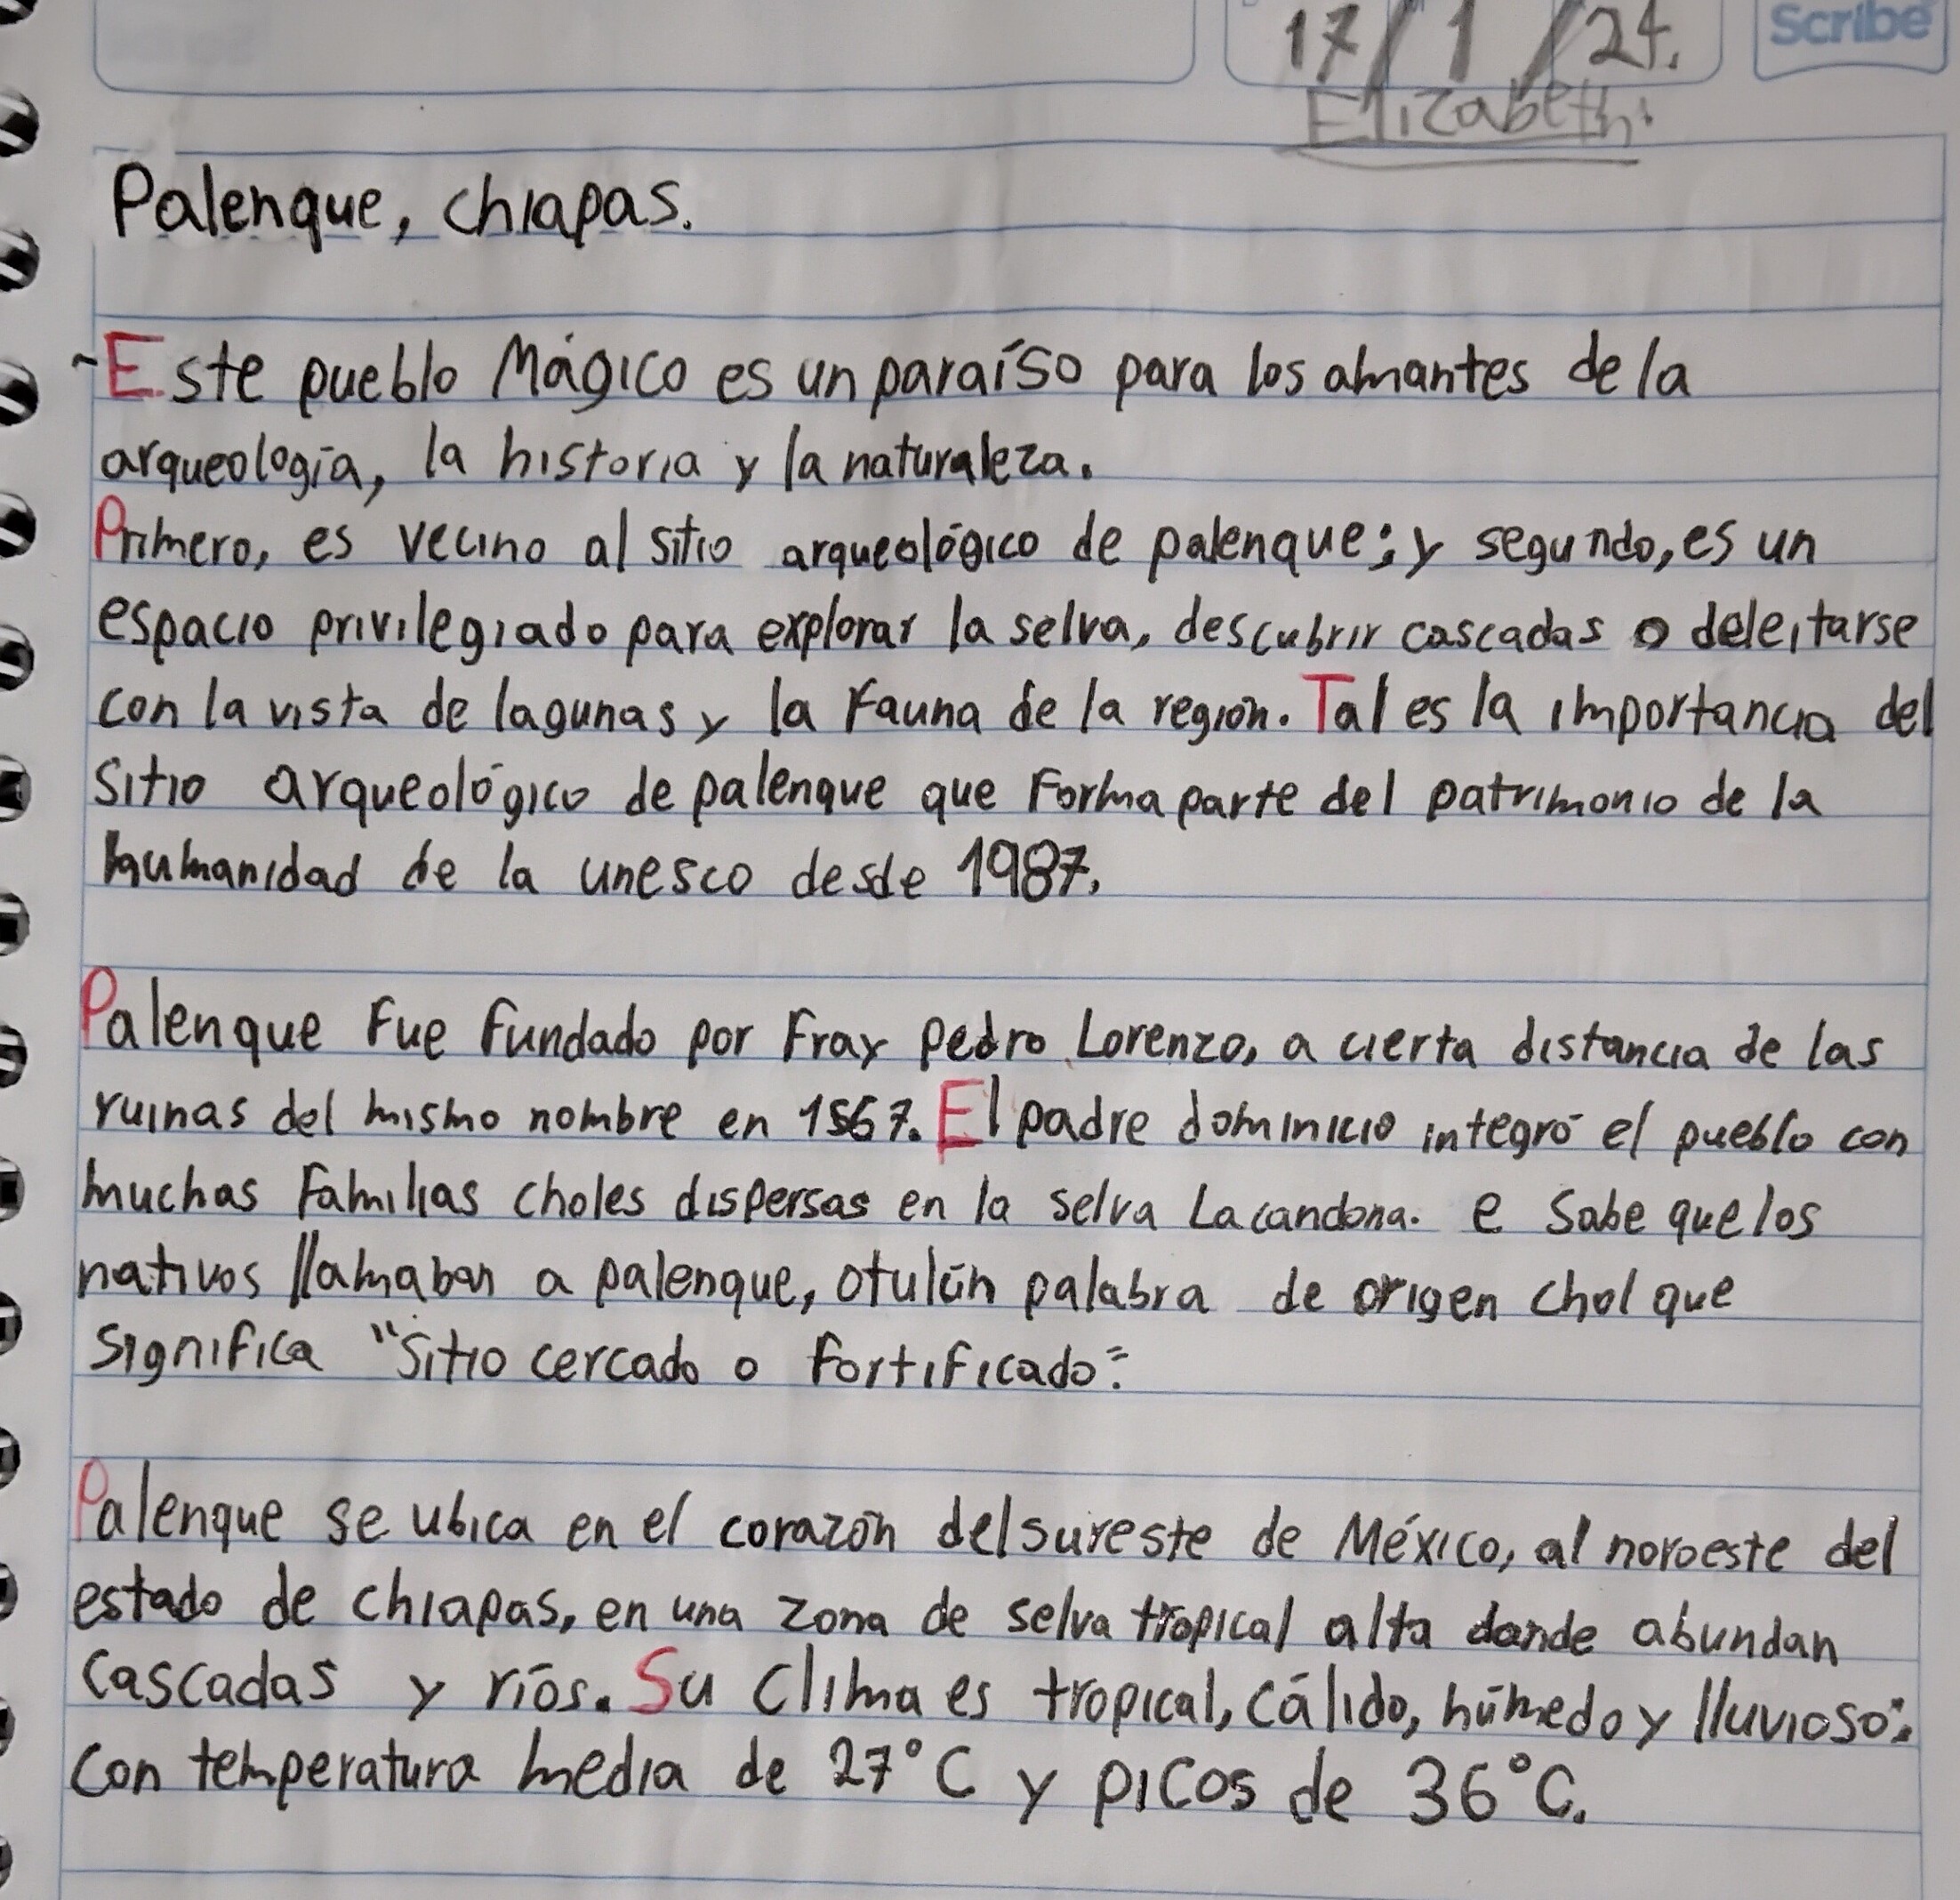 17/1/24.
Scribe
Elizabeth.
Palenque, chiapas.
~Este pueblo Mágico es un paraíso para los amantes de la
arqueología, la historia y la naturaleza.
Primero, es vecino al sitio arqueológico de palenque; y segundo, es un
espacio privilegiado para explorar la selva, descubrir cascadas o deleitarse
con la vista de lagunas y la Fauna de la región. Tal es la importancia del
Sitio arqueológico de palenque que Forma parte del patrimonio de la
humanidad de la unesco desde 1987.
Palenque Fue fundado por Fray pedro Lorenzo, a cierta distancia de las
ruinas del mismo nombre en 1567. El padre dominicio integró el pueblo con
muchas Familias choles dispersas en la selva Lacandona. e Sabe que los
nativos llamaban a palenque, otulún palabra de origen chol que
significa "Sitio cercado o Fortificado".
Palenque se ubica en el corazón del sureste de México, al noroeste del
estado de chiapas, en una zona de selva tropical alta donde abundan
cascadas y ríos. Su Clima es tropical, cálido, húmedo y lluvioso;
con temperatura media de 27°C y picos de 36°C.